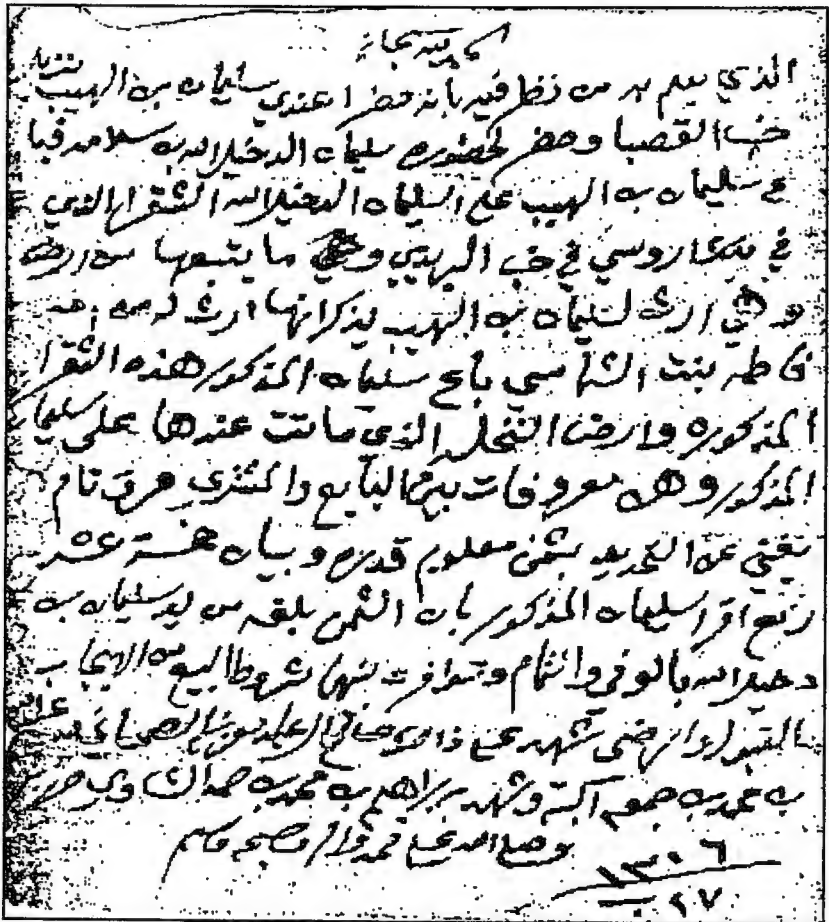 الحمد لله سبحانه
الذي يعلم به من نظر فيه بانه حضرا عندي سليمان بن الهيب
خب القصبا وحضر لحضوره سليمان الدخيل الله بن سلامه فبا
ع سليمان بن الهيب على السليمان الدخيل الله الشقرا الذي
في خب البريدي وهي ما يتبعها من ارض
وهي ارث لسليمان بن الهيب يذكر انها ارث له من امه
فاطمه بنت الشماسي باع سليمان المذكور هذه الشقرا
المذكوره وارض النخله الذي ماتت عندها على سليما
المذكور وهن معروفات بين البايع والمشتري معرفة تام
تغني عن التحديد بثمن معلوم قدره وبيانه خمسة عشر
اقرا سليمان المذكور بان الثمن بلغه من يد سليمان بن
دخيل الله بالوفي والتمام وتوافرت بينهما شروط البيع من الايجاب
بالقبول والرضى شهد على ذا
بن محمد بن جمعه اكبة وشهد به براهيم بن محمد بن حمد الشاوي حرر
وصلى الله على محمد واله وصحبه وسلم
١٣٠٦
٢٧